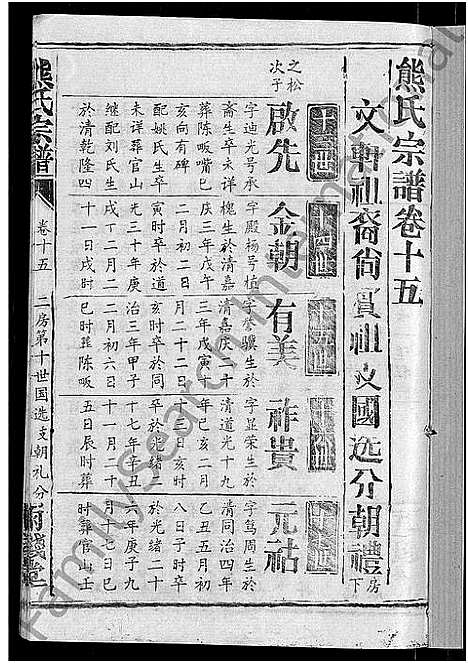 熊氏宗譜卷十五
文軒祖裔尚賓祖支國选分朝禮房下
十三世
十四世
十五世
十六世
十七世
之松次子
啟先
字迪光号承
斎生卒未详
葬陈畈嘴巳
亥向有碑
配姚氏生卒
未详葬官山
继配刘氏生
於清乾隆四
金朝
字殿杨号植
槐生於清嘉
庆三年戊午
二月初二日
寅时卒於道
光三十年庚
戌丁二月二
十一日戌时
有美
字誉骥生於
清嘉庆二十
三年戊寅十
月二十二日
亥时卒於同
治三年甲子
二月初六日
巳时葬陈畈
祚贵
字显荣生於
清道光十九
年己亥二月
十三日亥时
卒於光绪二
十七年辛丑
十一月二十
五日辰时葬
元祜
字笃周生於
清同治四年
乙丑五月初
八日子时卒
於光绪二十
六年庚子九
月十七日巳
时葬官山壬
熊氏宗譜
卷十五
二房第十世国选支朝礼分